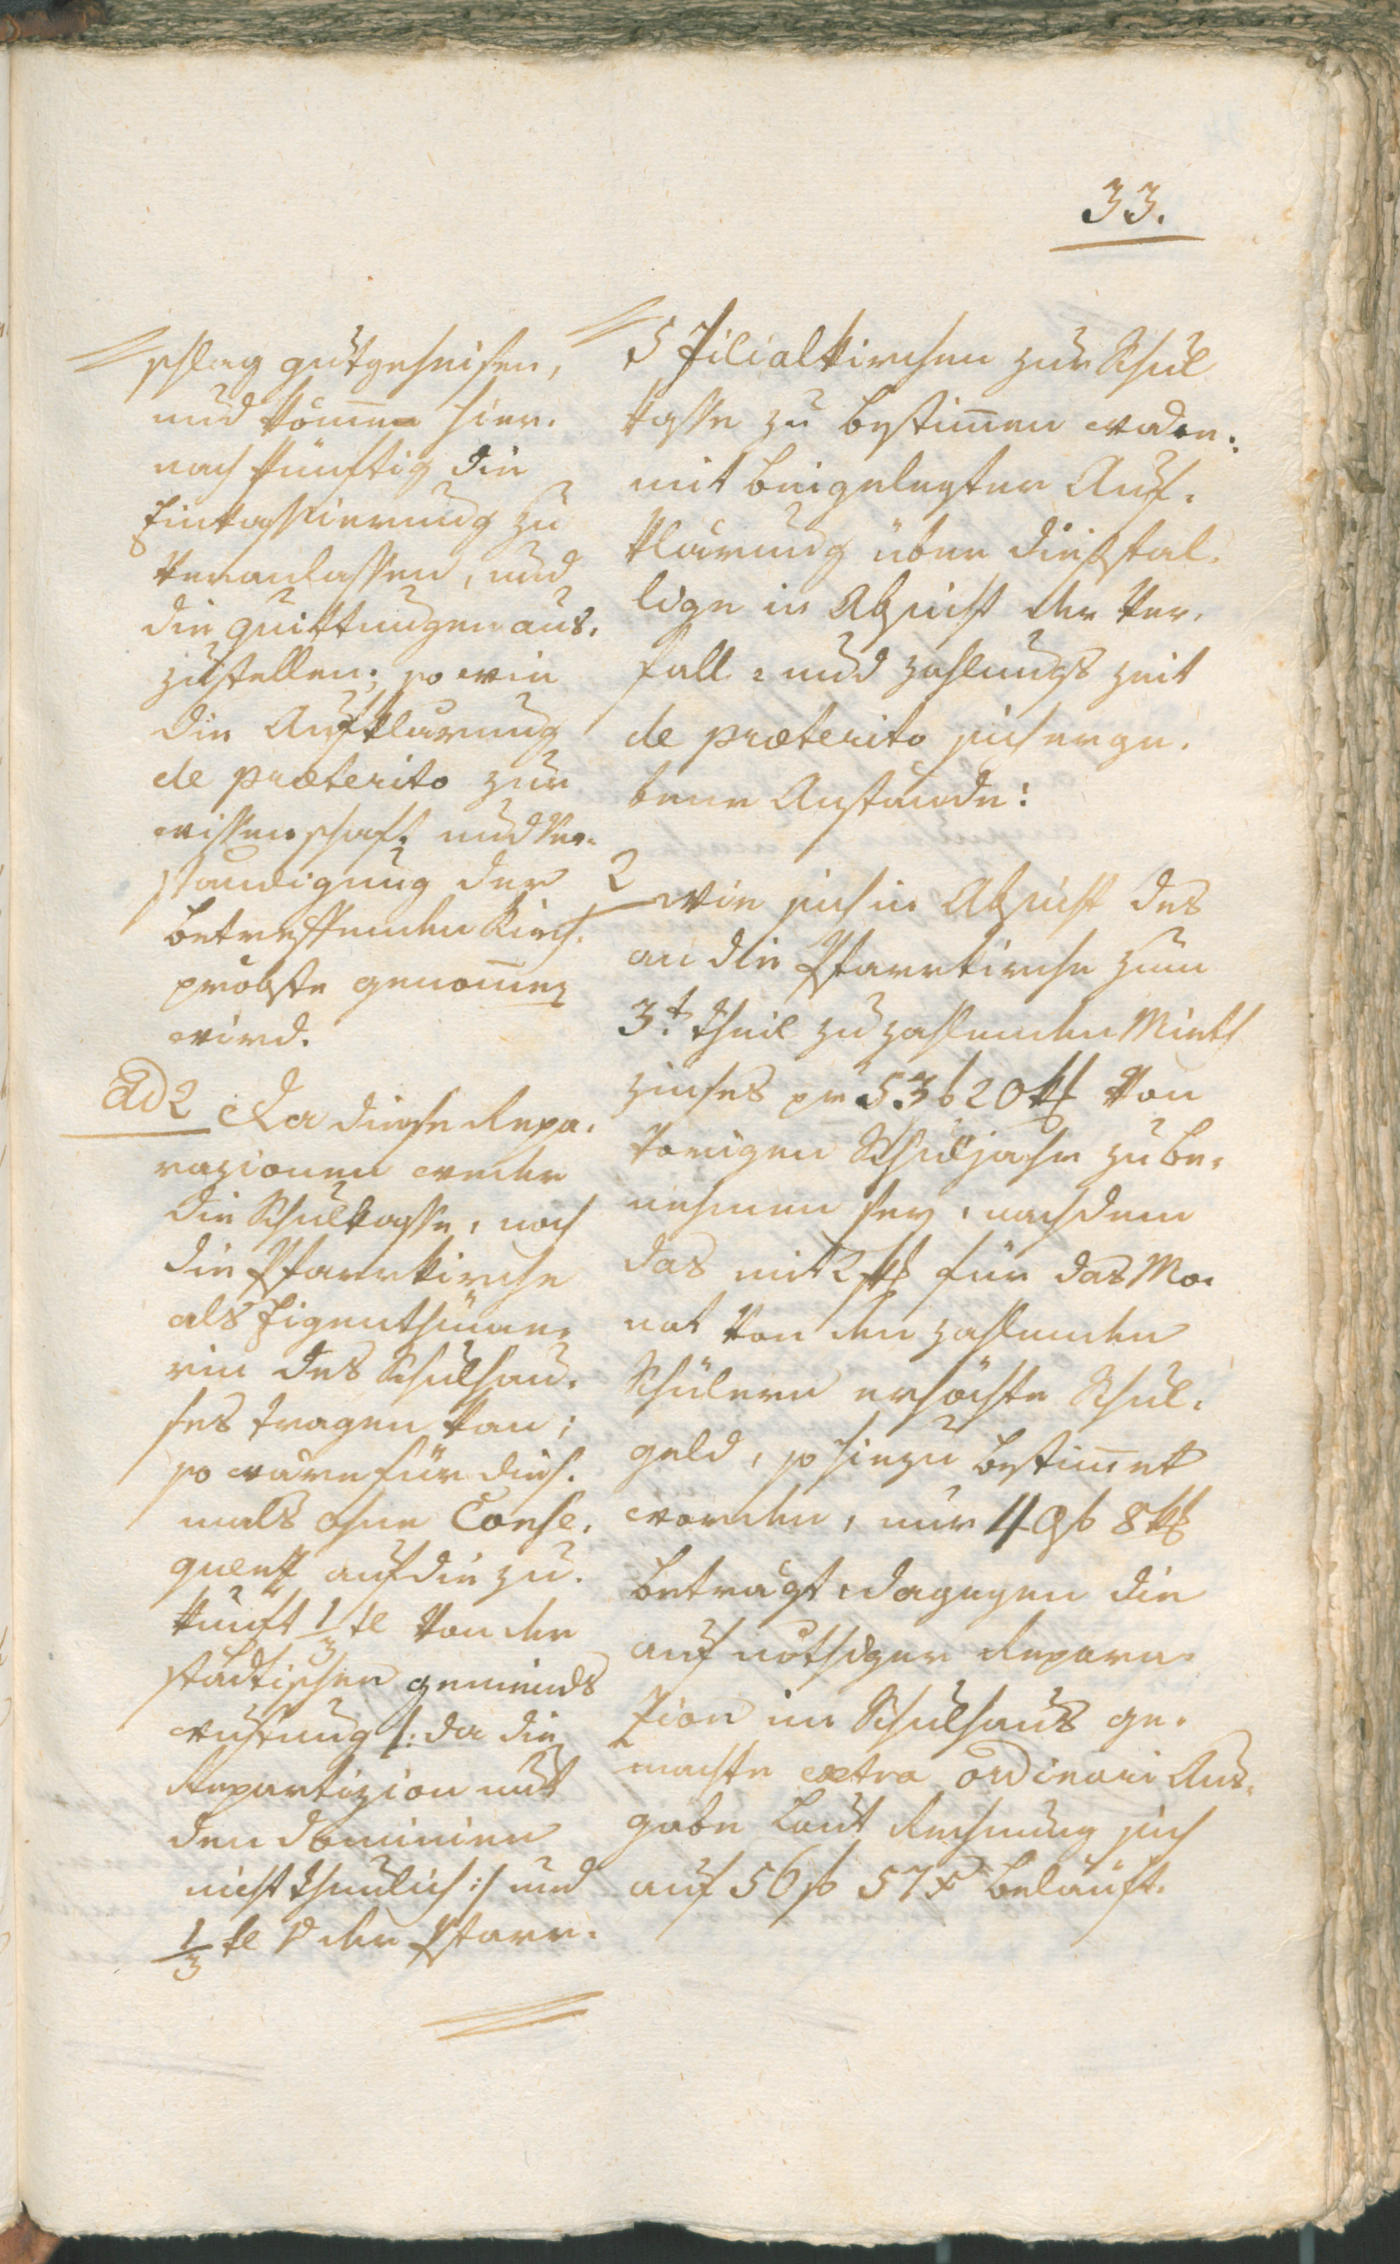 33.
schlag gutgeheisen,
und kom̅en hier-
nach künftig die
Einkassierung zu
veranlassen, und
die Quittungen aus-
zustellen; so wie
die Aufklärung
de præterito zur
wissenschaft und Ver-
ständigung der
betreffenden Kirch-
pröbste genom̅en
wird.
ad 2 Da diese Repa-
razionen weder
die Schulkasse, noch
die Pfarrkirche
als Eigenthüme-
rin des Schulhau-
ses tragen kan;
so wäre für dies-
mals ohne Conse-
quenz auf die zu-
kunft 1/3 tl von der
städtischen gemeinds
|: da die
Repartizion mit
den dominien
nicht thunlich :| und
1/3 tl v der Pfarr-
5 Filialkirchen zur Schul
kasse zu bestim̅en waren:
mit beigelegter Auf-
klärung über diesfäl-
lige in Absicht der Ver-
fall- und zahlungs zeit
de præterito sich erge-
bene Anstände:
2 wie sich in Absicht des
an die Pfarrkirche zum
3t theil zu zahlenden Mieth
zinses pr 53 f 20 kr von
vorigen Schuljahr zu be-
nehmen sey, nachdem
das mit 2 kr für das Mo-
nat von den zahlenden
Schülern erhöhte Schul-
geld, so hiezu bestim̅et
worden, nur 49 f 8 kr
beträgt, dagegen die
auf nöthiger Repara-
zion im Schulhaus ge-
machte extra ordinari Aus-
gabe Laut Rechnung sich
auf 56 f 57 x beläuft.